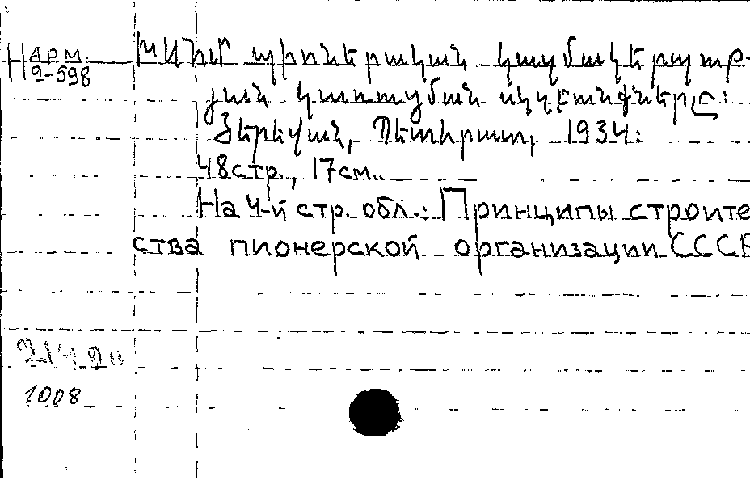 Н АРМ. 2-598
ԽՍՀՄ պիոներական կազմակերպութ-
յան կառուցման սկզբունքները:
Յերեվան, Պետհրատ, 1934:
48стр., 17см.
На 4-й стр. обл.: Принципы строите
ства пионерской организации СССР
1008